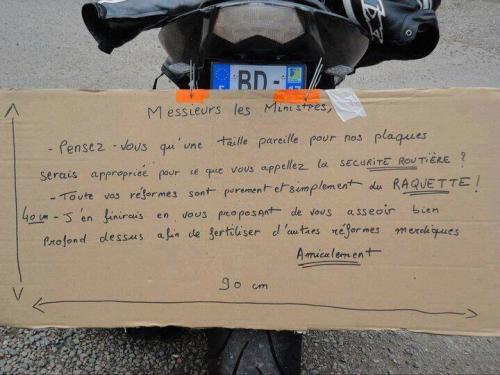 BD-
Messieurs les Ministres,
- Pensez-vous qu'une taille pareille pour nos plaques
serais appropriée pour ce que vous appellez la SECURITE ROUTIÈRE ?
- Toute vos réformes sont purement et simplement du RAQUETTE !
40 cm - J'en finirais en vous proposant de vous asseoir bien
profond dessus afin de fertiliser d'autres réformes merdiques
Amicalement
90 cm